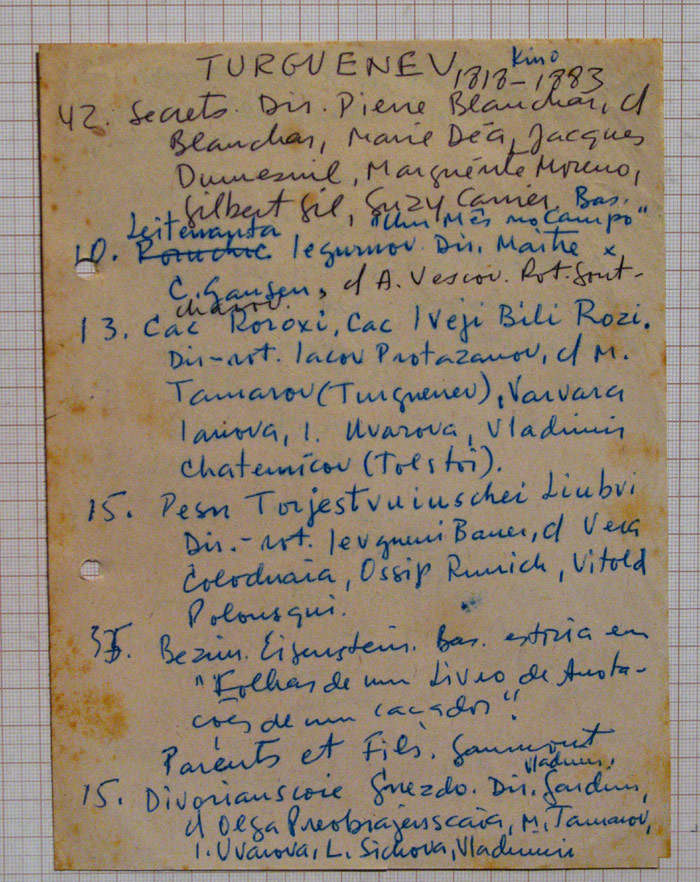 TURGUENEV, Kino
1818-1883
42. Secrets. Dir. Pierre Blanchar, c/
Blanchar, Marie Déa, Jacques
Dumesnil, Marguérite Moreno,
Gilbert Gil, Suzy Carrier. Bas.
"Um Mês no Campo"
Leitenanta
10. Iegurnov. Dir. Maitre x
C. Gansen, c/ A. Vescov. Rot. Gont-
charov.
13. Cac Roroxi, Cac Sveji Bili Rozi.
Dir-rot. Iacov Protazanov, c/ M.
Tamarov (Turguenev), Varvara
Ianova, I. Uvarova, Vladimir
Chaternicov (Tolstói).
15. Pesn Torjestvuiuschei Liubvi
Dir.-rot. Ievgueni Bauer, c/ Vera
Colodnaia, Ossip Runich, Vitold
Polonsqui.
35. Bezin. Eisenstein. Bas. estória em
"Folhas de um Livro de Anota-
ções de um caçador".
Parents et Fils. Gaumont
Vladimir,
15. Divorianscoie Gnezdo. Dir. Gardin,
c/ Olga Preobrajenscaia, M. Tamarov,
I. Uvarova, L. Sichova, Vladimir